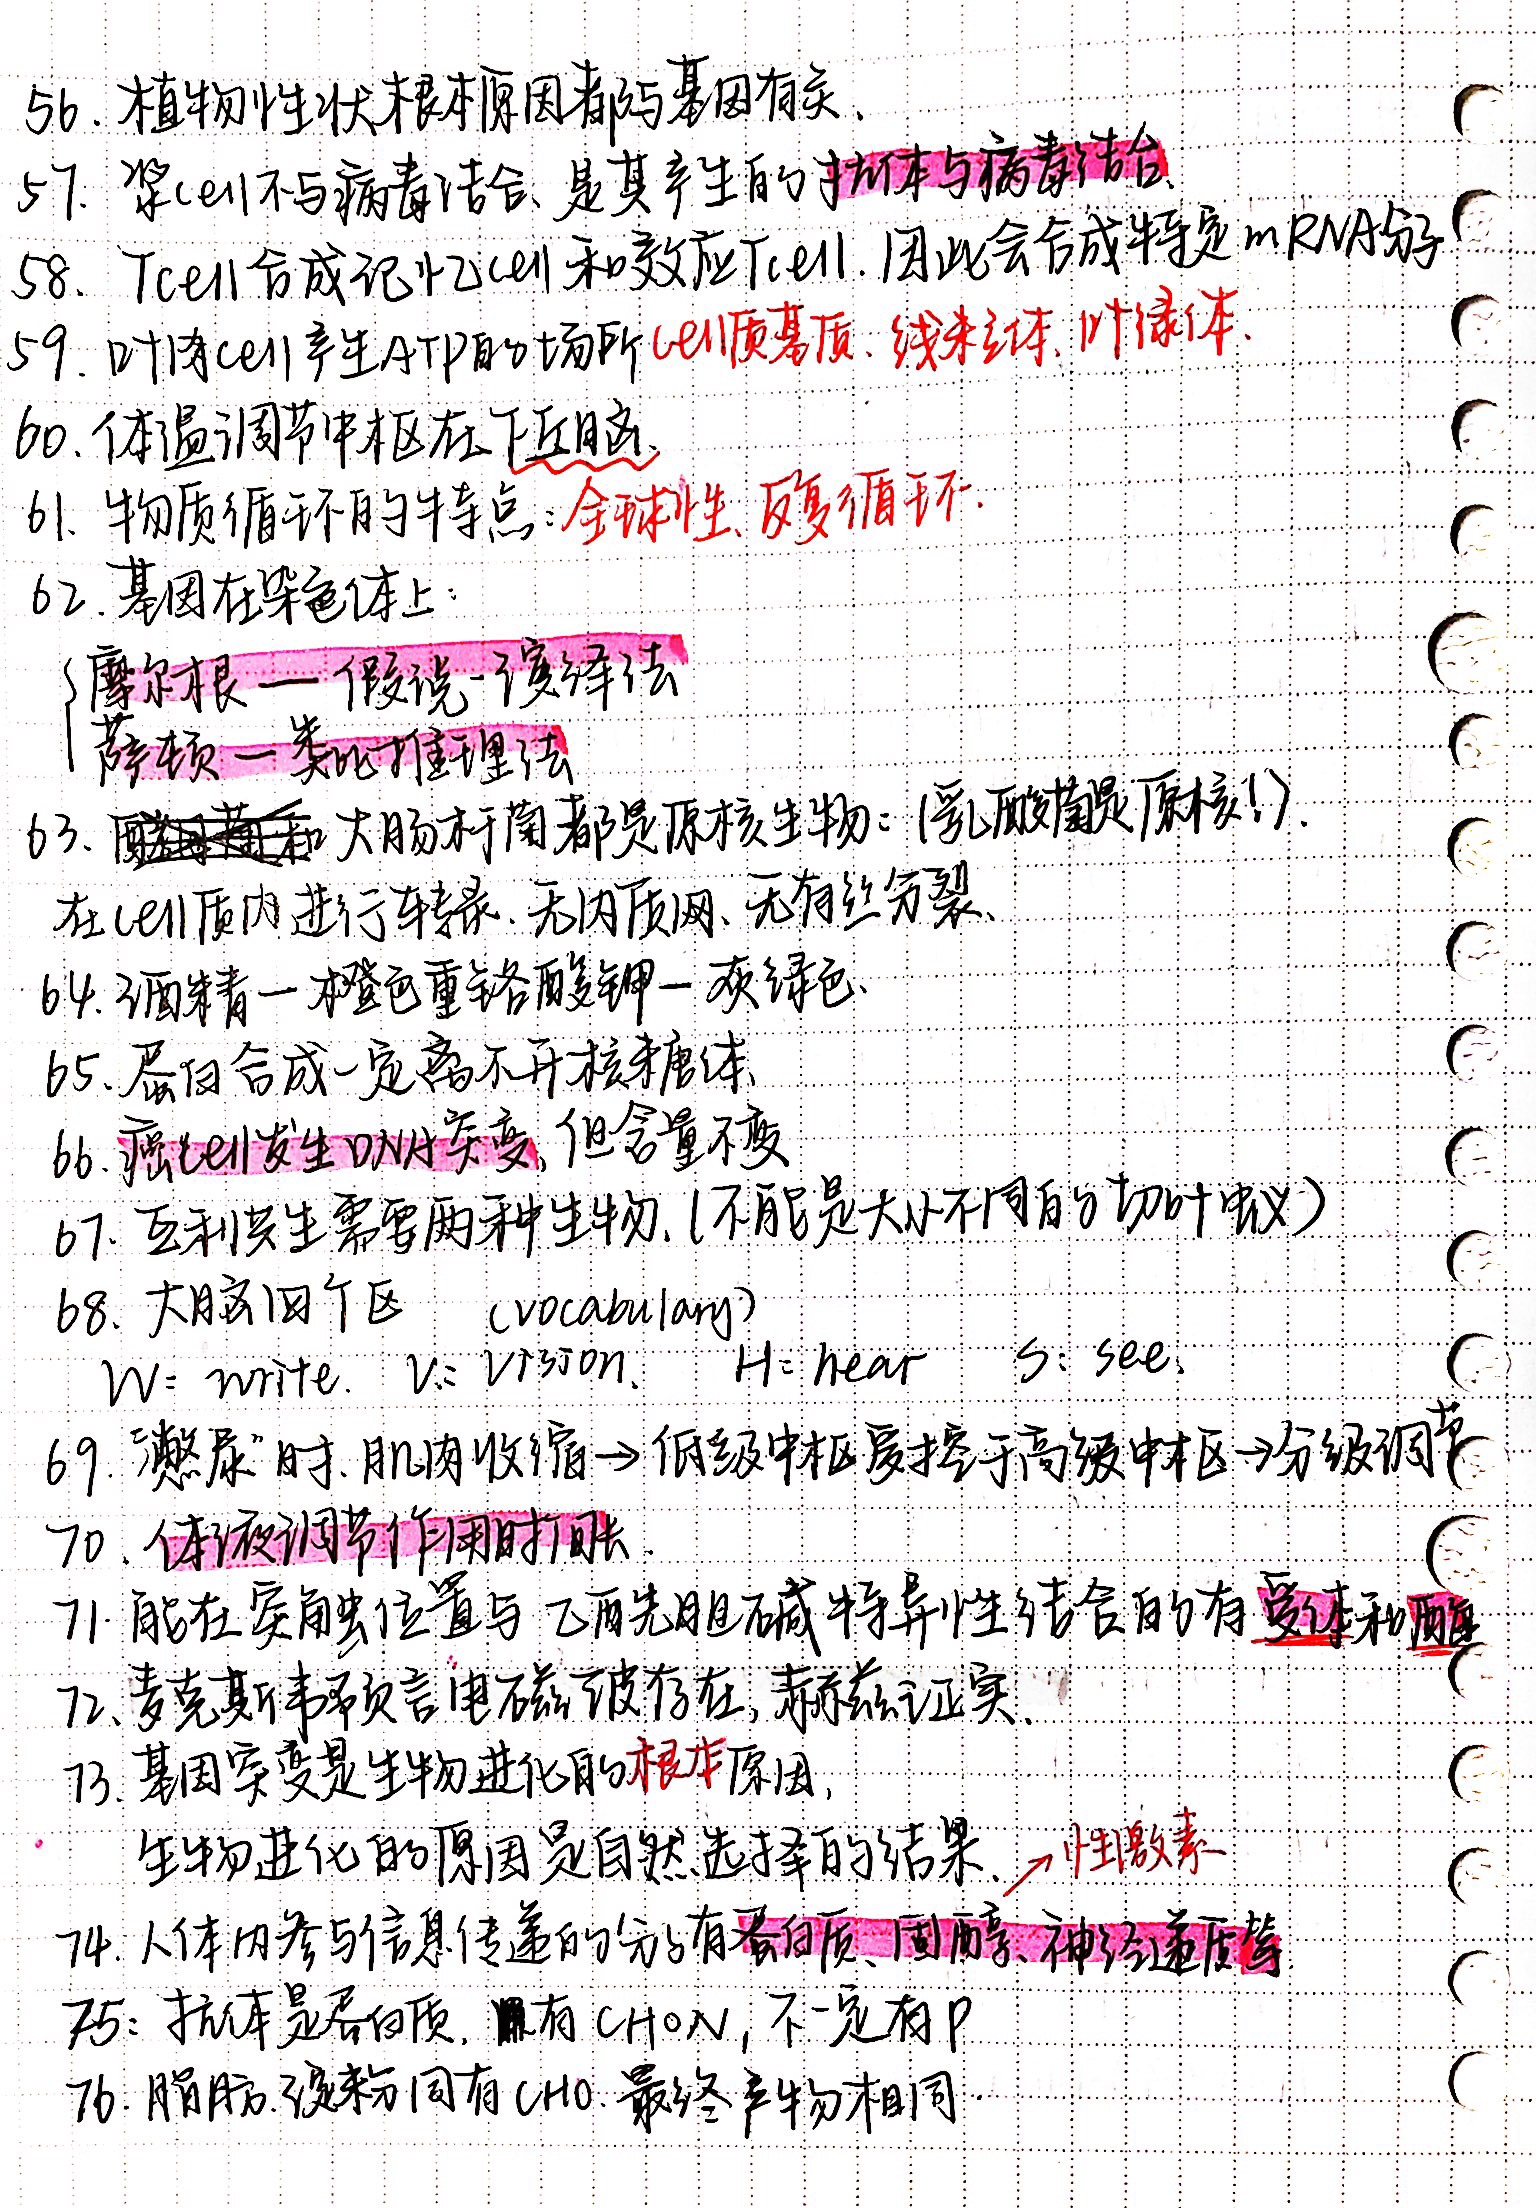 56. 植物性状根本原因都与基因有关.
57. 浆cell不与病毒结合、是其产生的抗体与病毒结合.
58. Tcell合成记忆cell和效应Tcell. 因此会合成特定mRNA分子
59. 叶肉cell产生ATP的场所cell质基质、线粒体、叶绿体.
60. 体温调节中枢在下丘脑.
61. 物质循环的特点:全球性、反复循环.
62. 基因在染色体上:
摩尔根—假说-演绎法
萨顿—类比推理法
63. 大肠杆菌都是原核生物:(乳酸菌是原核!).
在cell质内进行转录. 无内质网、无有丝分裂.
64. 酒精—橙色重铬酸钾—灰绿色.
65. 蛋白合成一定离不开核糖体.
66. 癌cell发生DNA突变, 但含量不变
67. 互利共生需要两种生物. (不能是大小不同的切叶蚁)
68. 大脑四个区 (vocabulary)
W: write. V: vision. H: hear S: see.
69. "憋尿"时. 肌肉收缩→低级中枢受控于高级中枢→分级调节
70. 体液调节作用时间长.
71. 能在突触位置与乙酰胆碱特异性结合的有受体和酶
72. 麦克斯韦预言电磁波存在, 赫兹证实.
73. 基因突变是生物进化的根本原因,
生物进化的原因是自然选择的结果.
→性激素
74. 人体内参与信息传递的分子有蛋白质、固醇、神经递质等
75: 抗体是蛋白质. 有CHON, 不一定有P
76. 脂肪. 淀粉同有CHO. 最终产物相同.